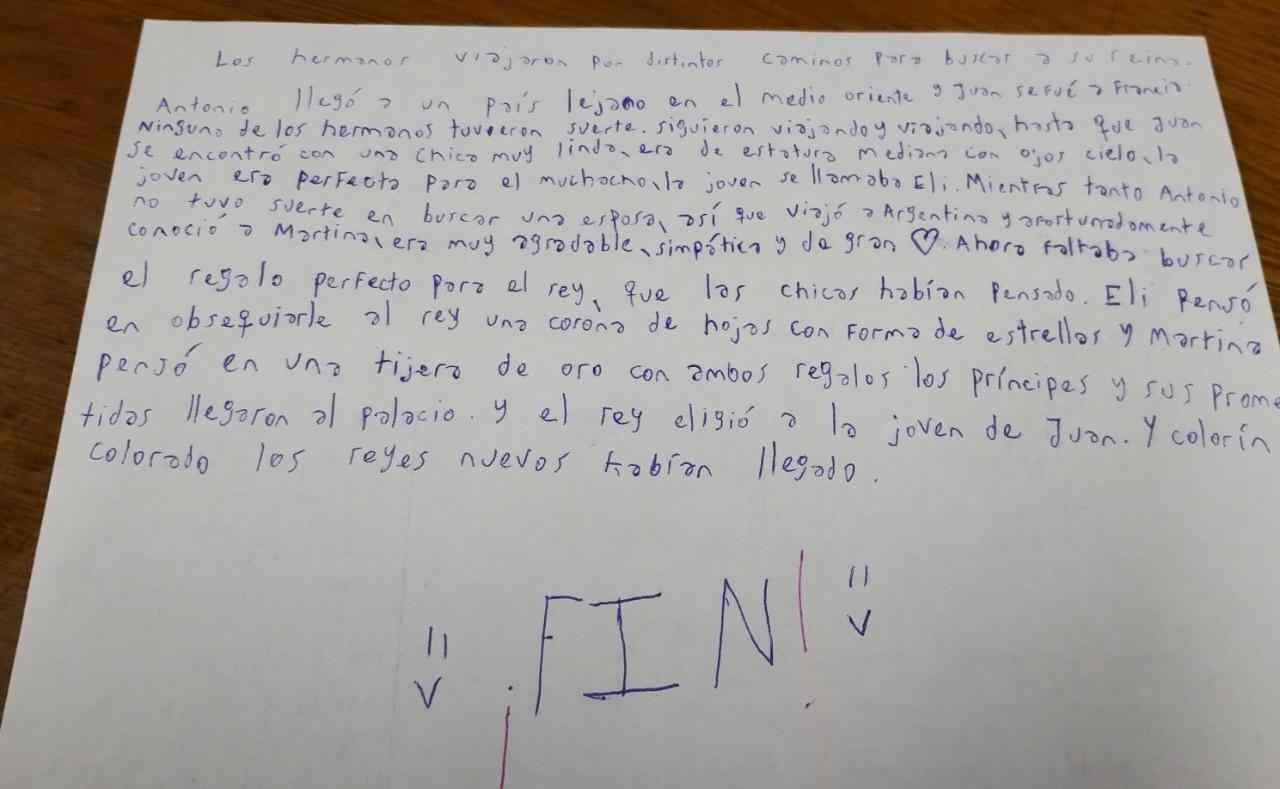 Los hermanos viajaron por distintos caminos para buscar a su reina.
Antonio llegó a un país lejano en el medio oriente y Juan se fué a Francia.
Ninguno de los hermanos tuvieron suerte. siguieron viajando y viajando, hasta que Juan
se encontró con una chica muy linda, era de estatura mediana con ojos cielo, la
joven era perfecta para el muchacho, la joven se llamaba Eli. Mientras tanto Antonio
no tuvo suerte en buscar una esposa, así que viajó a Argentina y afortunadamente
conoció a Martina, era muy agradable, simpática y de gran ♡. Ahora faltaba buscar
el regalo perfecto para el rey, que las chicas habían pensado. Eli pensó
en obsequiarle al rey una corona de hojas con forma de estrellas y Martina
pensó en una tijera de oro con ambos regalos los príncipes y sus prome
tidas llegaron al palacio. y el rey eligió a la joven de Juan. Y colorín
colorado los reyes nuevos habían llegado.
¡FIN!